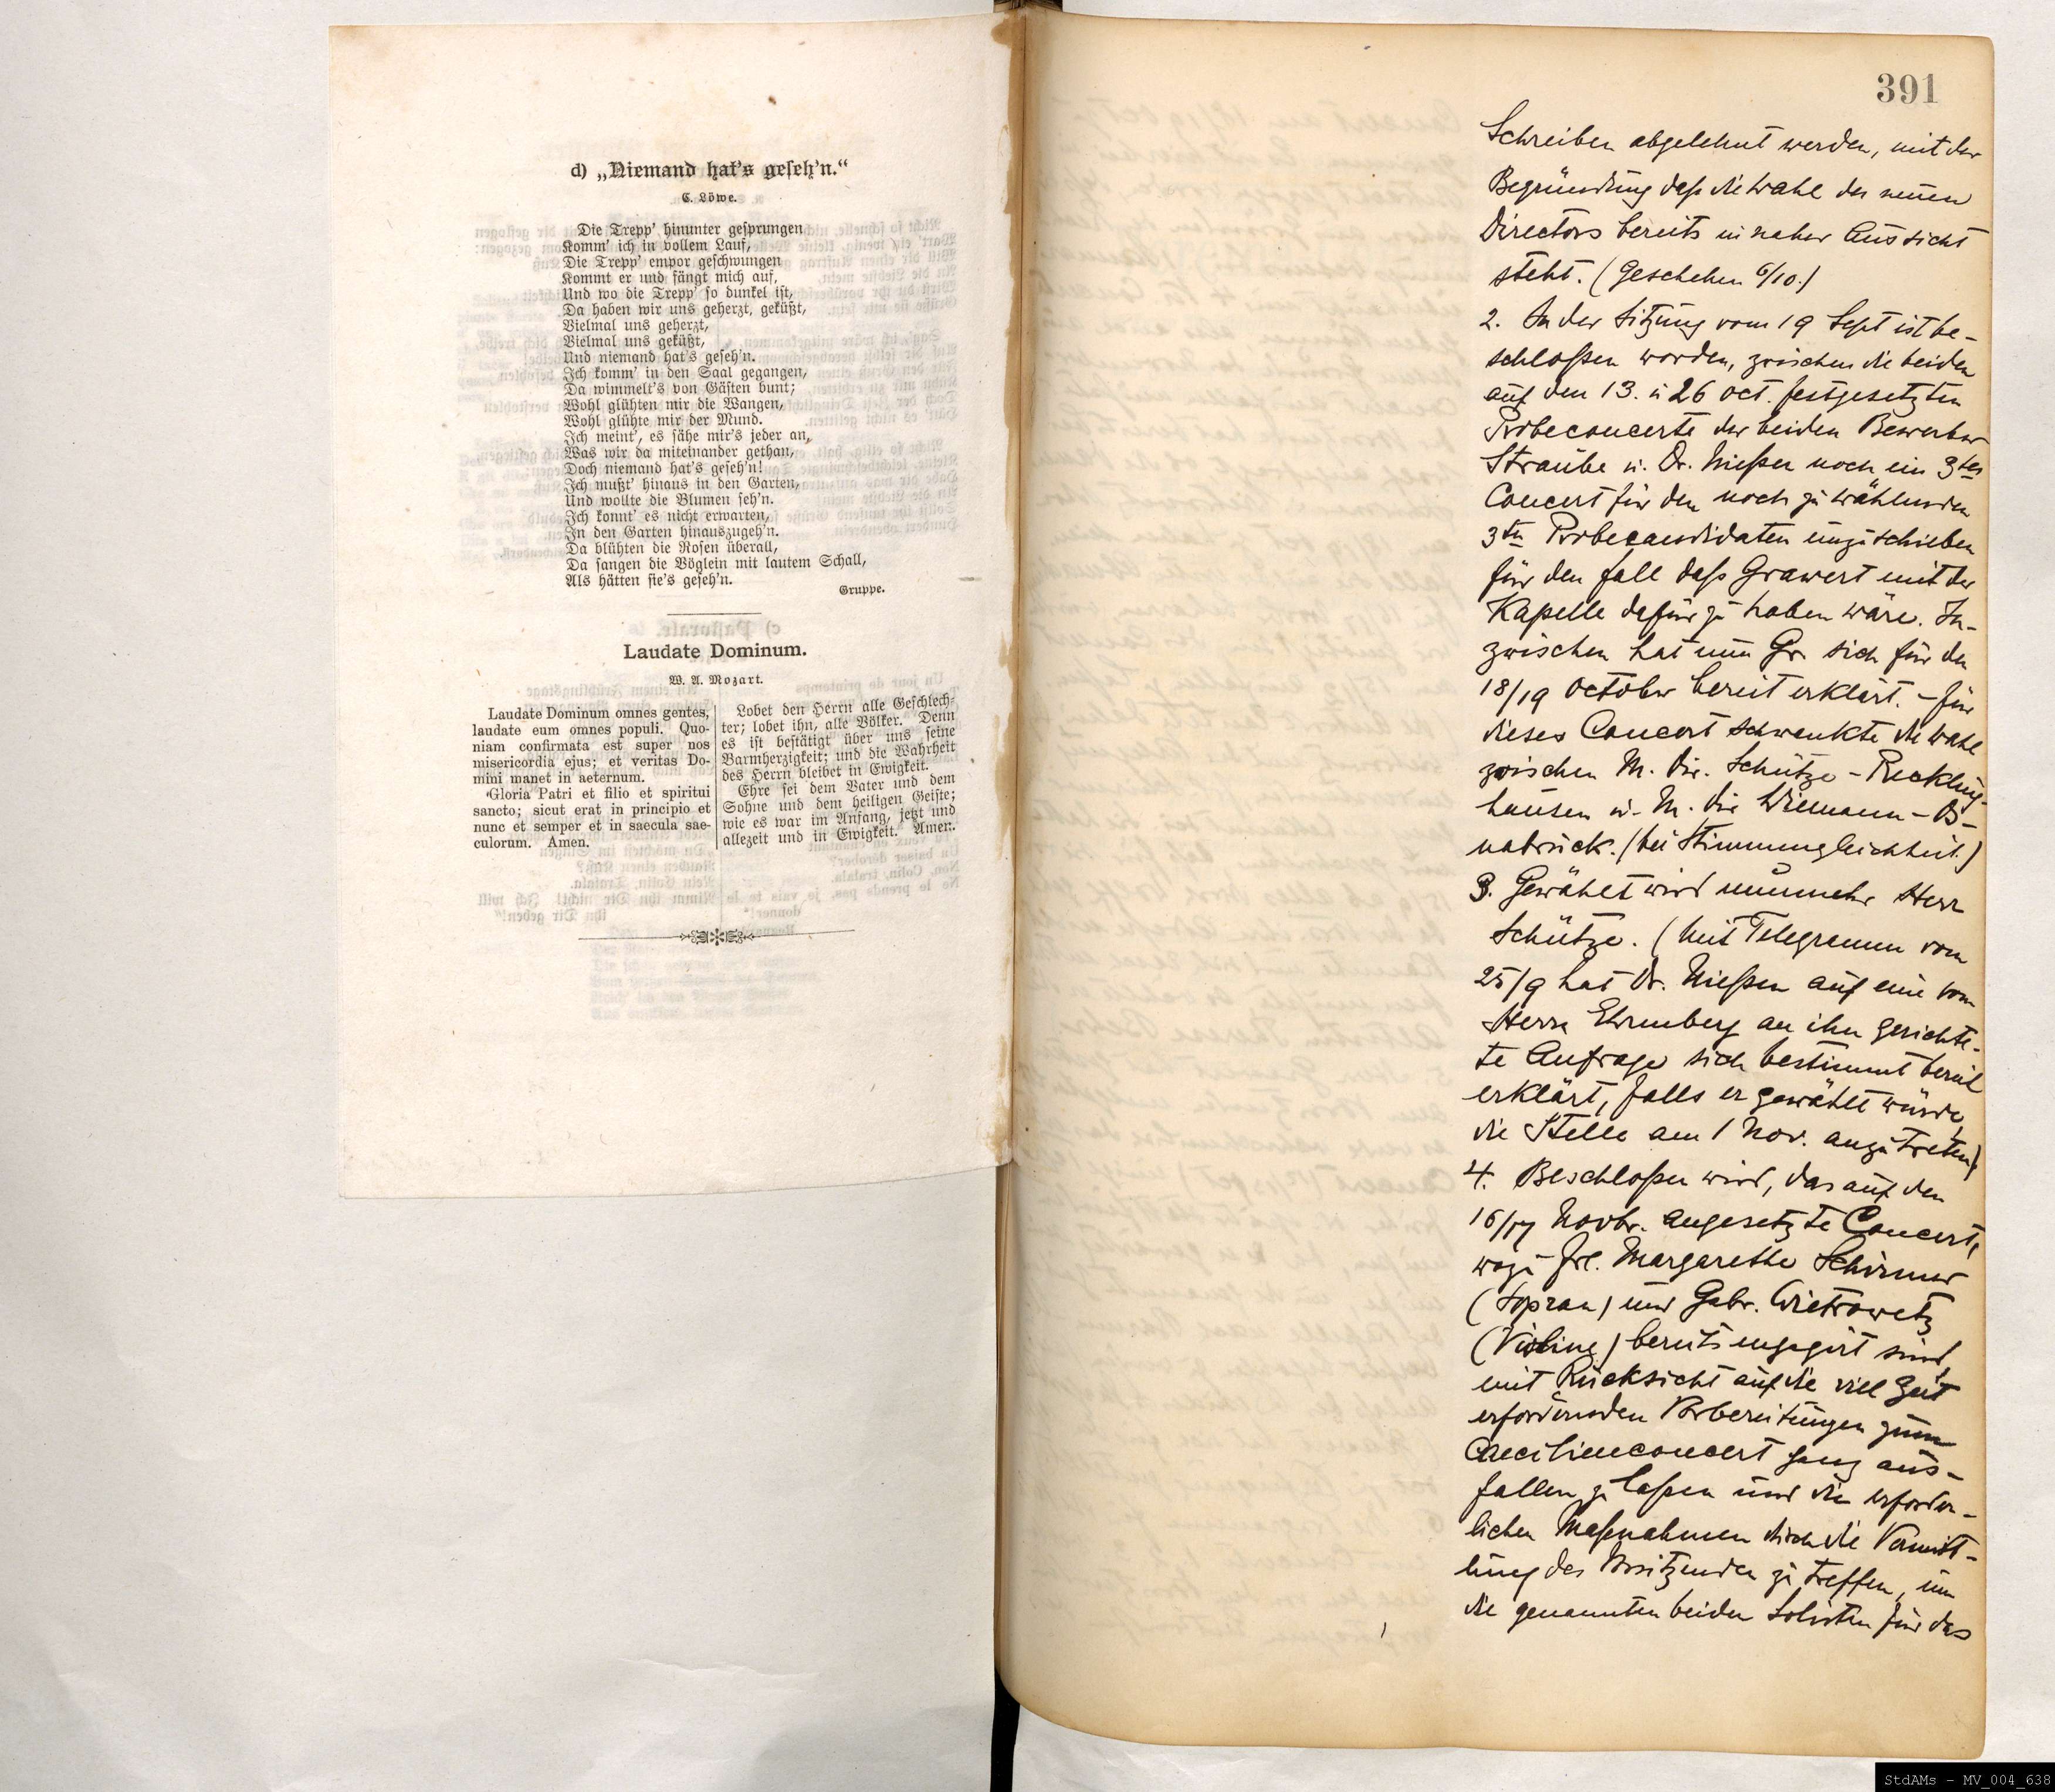 d) „Niemand hat's geseh'n.“
C. Löwe.
Die Trepp' hinunter gesprungen
Komm' ich in vollem Lauf,
Die Trepp' empor geschwungen
Kommt er und fängt mich auf,
Und wo die Trepp' so dunkel ist,
Da haben wir uns geherzt, geküßt,
Vielmal uns geherzt,
Vielmal uns geküßt,
Und niemand hat's geseh'n.
Ich komm' in den Saal gegangen,
Da wimmelt's von Gästen bunt;
Wohl glühten mir die Wangen,
Wohl glühte mir der Mund.
Ich meint', es sähe mir's jeder an,
Was wir da miteinander gethan,
Doch niemand hat's geseh'n!
Ich mußt' hinaus in den Garten,
Und wollte die Blumen seh'n.
Ich konnt' es nicht erwarten,
In den Garten hinauszugeh'n.
Da blühten die Rosen überall,
Da sangen die Vöglein mit lautem Schall,
Als hätten sie's geseh'n.
Gruppe.
Laudate Dominum.
W. A. Mozart.
Laudate Dominum omnes gentes,
laudate eum omnes populi. Quo-
niam confirmata est super nos
misericordia ejus; et veritas Do-
mini manet in aeternum.
Gloria Patri et filio et spiritui
sancto; sicut erat in principio et
nunc et semper et in saecula sae-
culorum. Amen.
Lobet den Herrn alle Geschlech-
ter; lobet ihn, alle Völker. Denn
es ist bestätigt über uns seine
Barmherzigkeit; und die Wahrheit
des Herrn bleibet in Ewigkeit.
Ehre sei dem Vater und dem
Sohne und dem heiligen Geiste;
wie es war im Anfang, jetzt und
allezeit und in Ewigkeit. Amen.
391
Schreiben abgelehnt werden, mit der
Begründung daß die Wahl des neuen
Directors bereits in naher Aussicht
steht. (Geschehen 6/10.)
2. In der Sitzung vom 19 Sept ist be-
schloßen worden, zwischen die beiden
auf den 13. u 26 Oct. festgesetzten
Probeconcerte der beiden Bewerber
Straube u. Dr. Nießen noch ein 3tes
Concert für den noch zu wählenden
3ten Probecandidaten einzuschieben
für den Fall daß Grawert mit der
Kapelle dafür zu haben wäre. In-
zwischen hat nun Gr. sich für den
18/19 October bereit erklärt. – Für
dieses Concert schwankte die Wahl
zwischen M. Dir. Schütze – Reckling-
hausen u. M. Dir Wiemann – Os-
nabrück. (bei Stimmengleichheit.)
3. Gewählt wird nunmehr Herr
Schütze. (Mit Telegramm vom
25/9 hat Dr. Nießen auf eine vom
Herrn Ehrenberg an ihn gerichte-
te Anfrage sich bestimmt bereit
erklärt, falls er gewählt würde,
die Stelle am 1 Nov. anzutreten)
4. Beschloßen wird, das auf den
16/17 Novbr. angesetzte Concert,
wozu Frl. Margarethe Schirmer
(Sopran) und Gabr. Wietrowetz
(Violine) bereits engagirt sind,
mit Rücksicht auf die viel Zeit
erfordernden Vorbereitungen zum
Caecilienconcert ganz aus-
fallen zu laßen und die erforder-
lichen Maßnahmen durch die Vermitt-
lung des Vorsitzenden zu treffen, um
die genannten beiden Solisten für das
StdAMs – MV_004_638